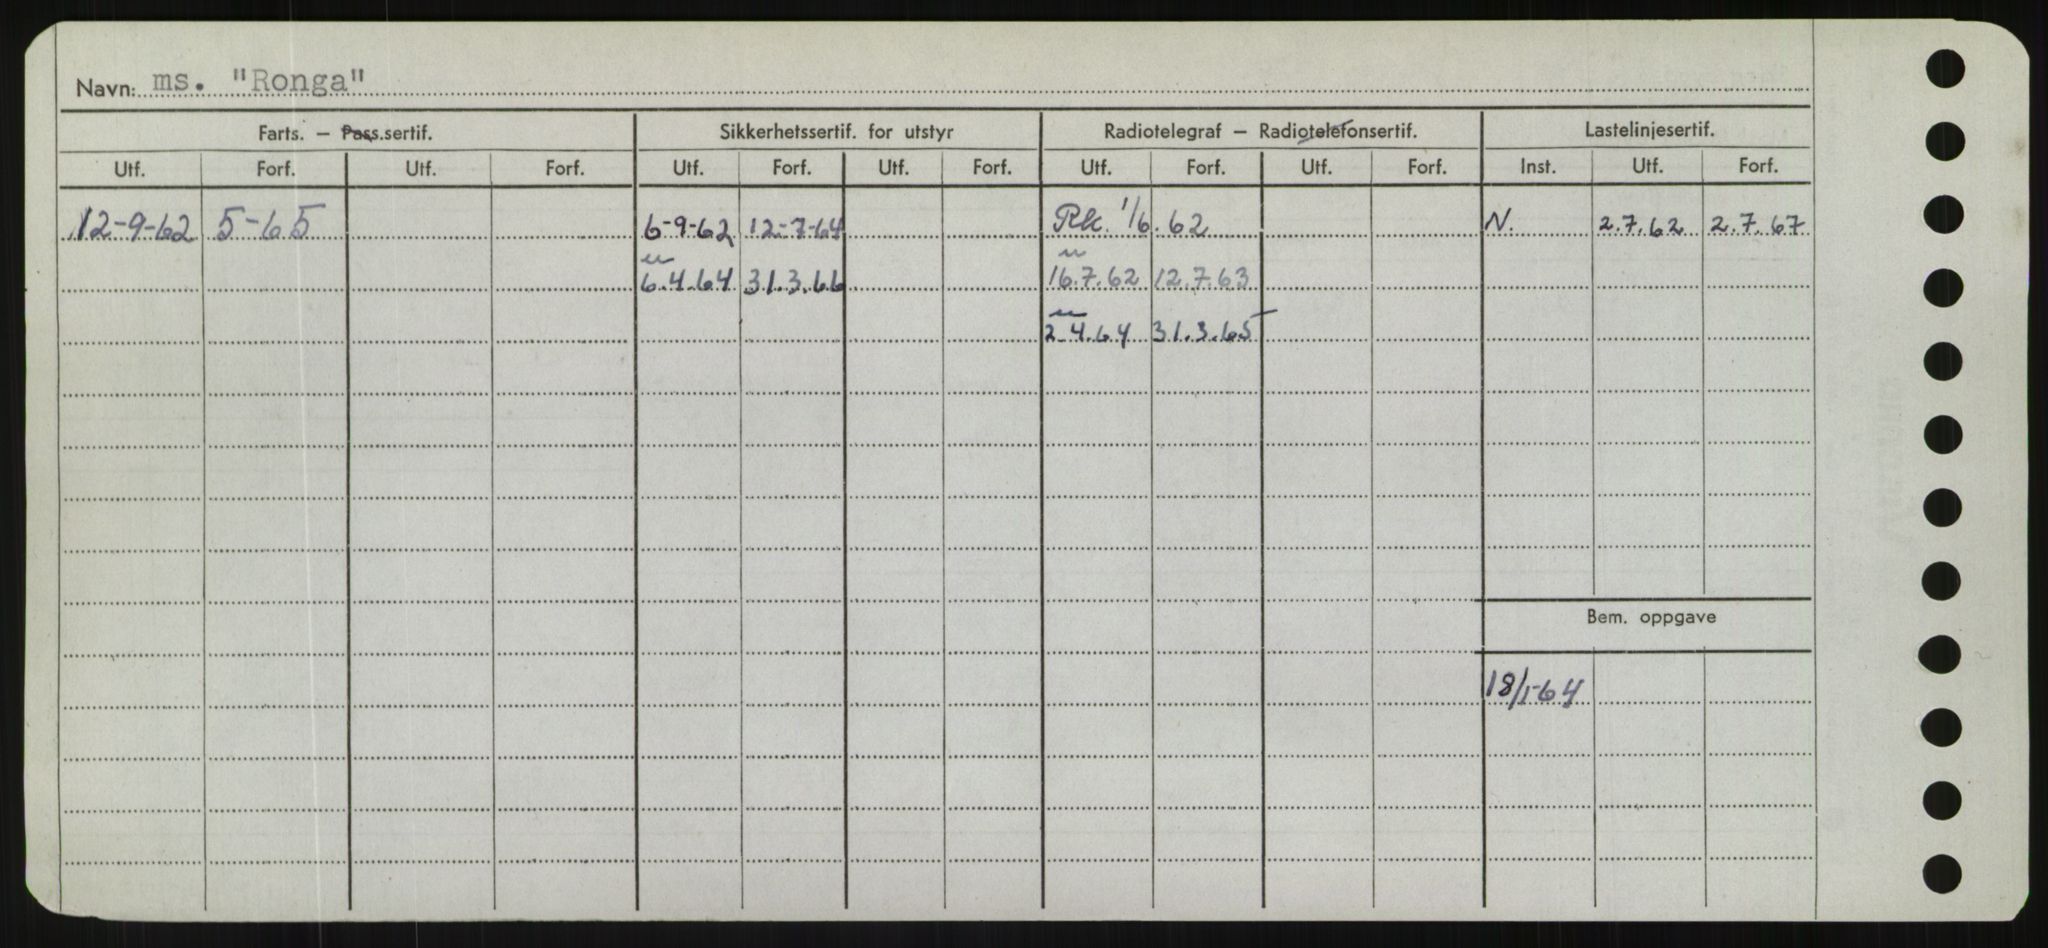 Navn: ms. "Ronga"
Farts. — Pass.sertif. Sikkerhetssertif. for utstyr Radiotelegraf — Radiotelefonsertif. Lastelinjesertif.
Utf. Forf. Utf. Forf. Utf. Forf. Utf. Forf. Utf. Forf. Utf. Forf. Inst. Utf. Forf.
12-9-62 5-65 6-9-62 12-7-64 Rk. 1/6.62 N. 2.7.62 2.7.67
6.4.64 31.3.66 16.7.62 12.7.63
2.4.64 31.3.65
Bem. oppgave
18/1-64